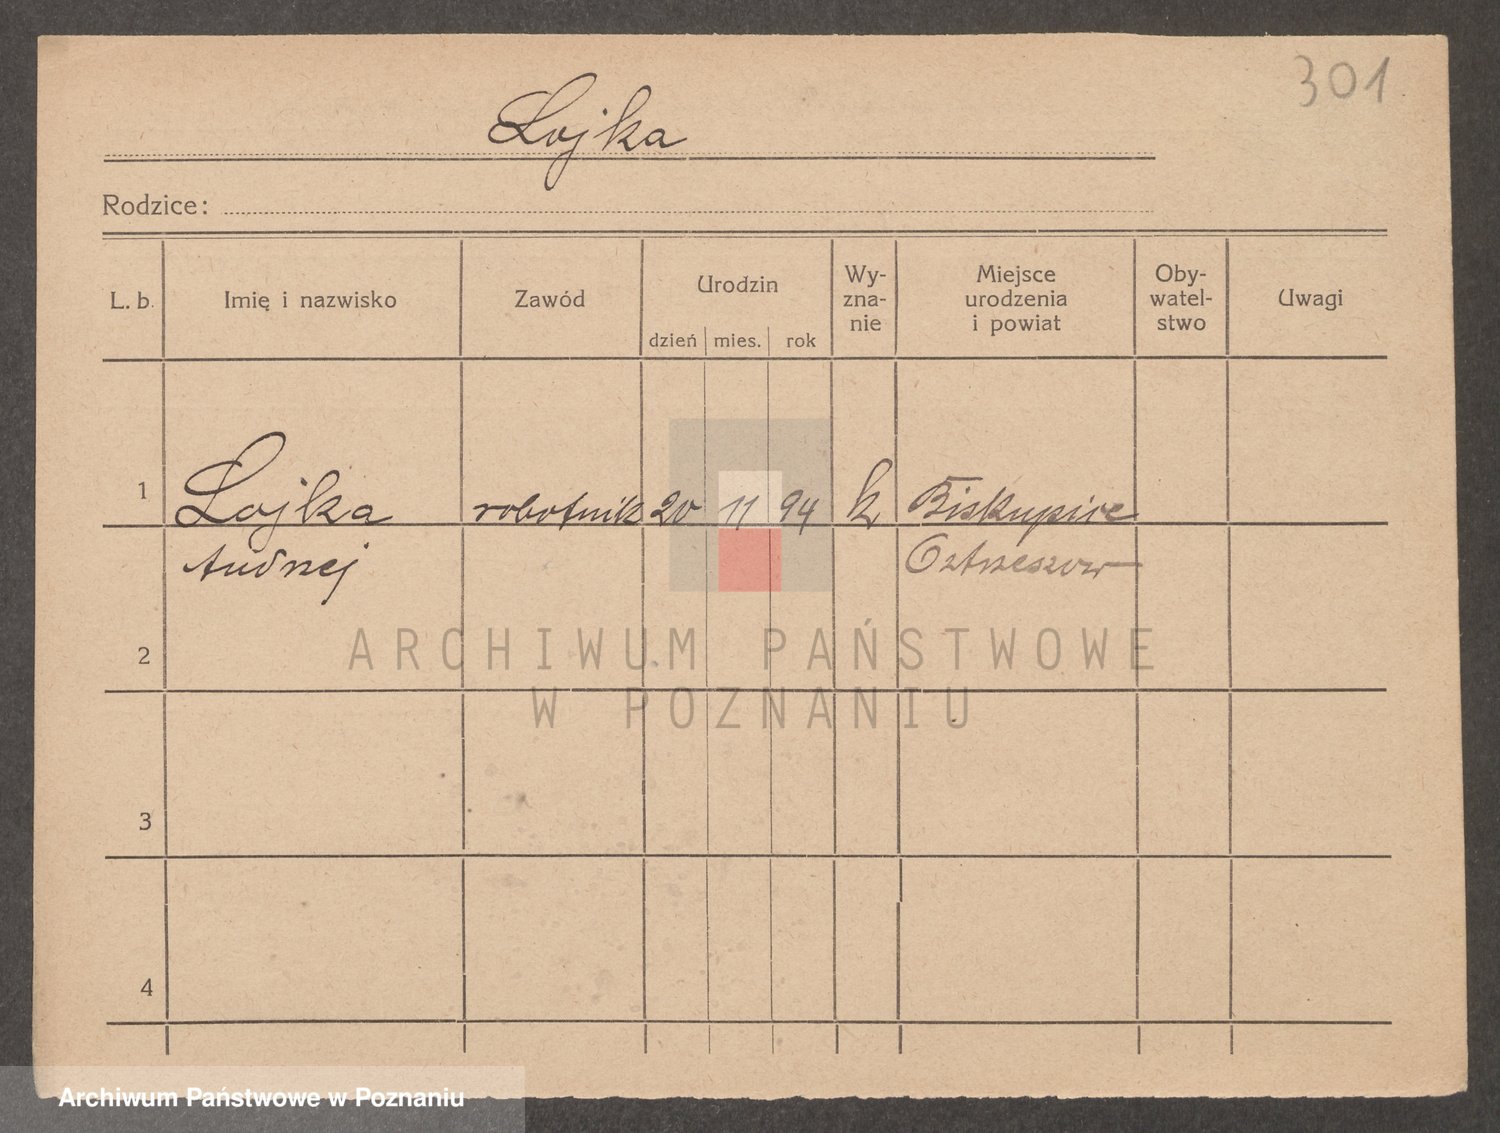 301
Lojka
Rodzice:
L. b. Imię i nazwisko Zawód Urodzin dzień mies. rok Wy-zna-nie Miejsce urodzenia i powiat Oby-watel-stwo Uwagi
1 Lojka robotnik 20 11 94 k Biskupice
Andrzej Ostrzeszow
2
ARCHIWUM PAŃSTWOWE
W POZNANIU
3
4
Archiwum Państwowe w Poznaniu